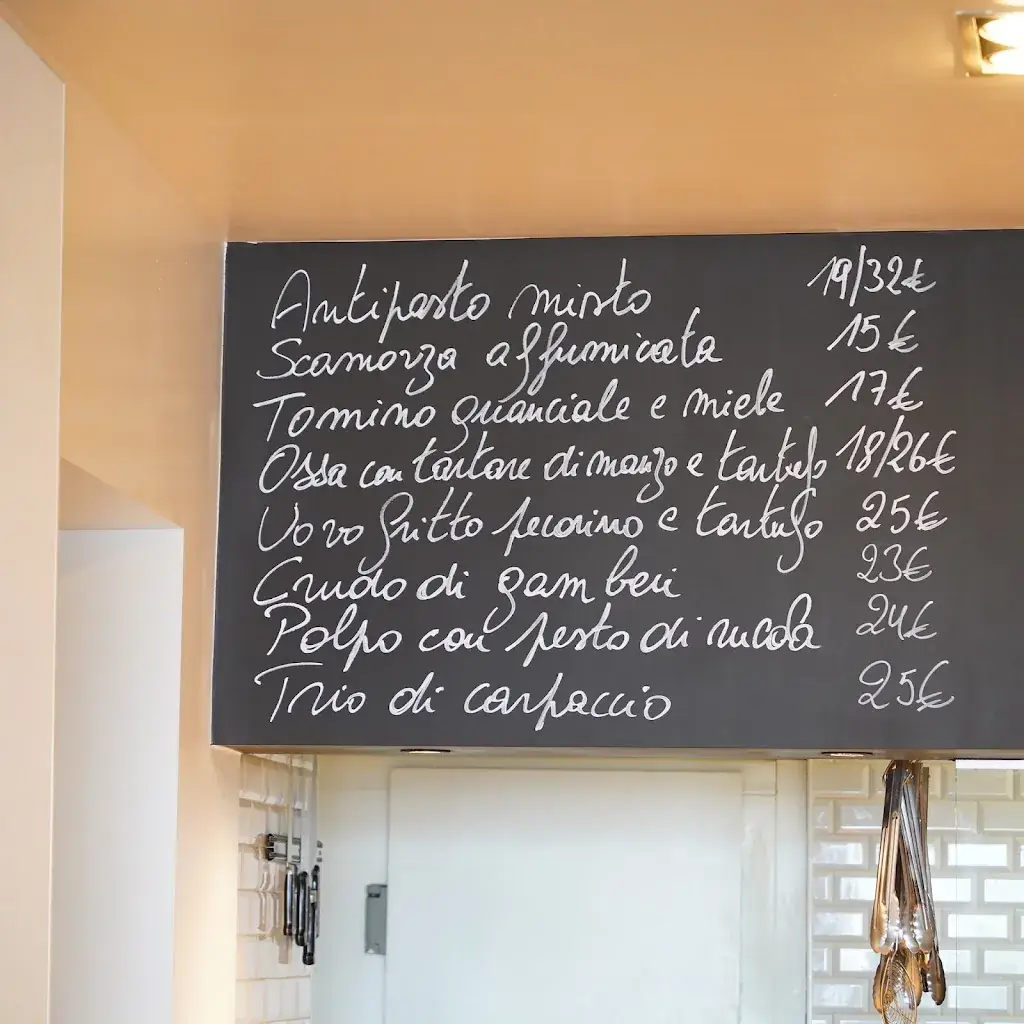 Antipasto misto 19/32€
Scamorza affumicata 15€
Tomino guanciale e miele 17€
Ossa con tartare di manzo e tartufo 18/26€
Uovo fritto pecorino e tartufo 25€
Crudo di gamberi 23€
Polpo con pesto di rucola 24€
Trio di carpaccio 25€